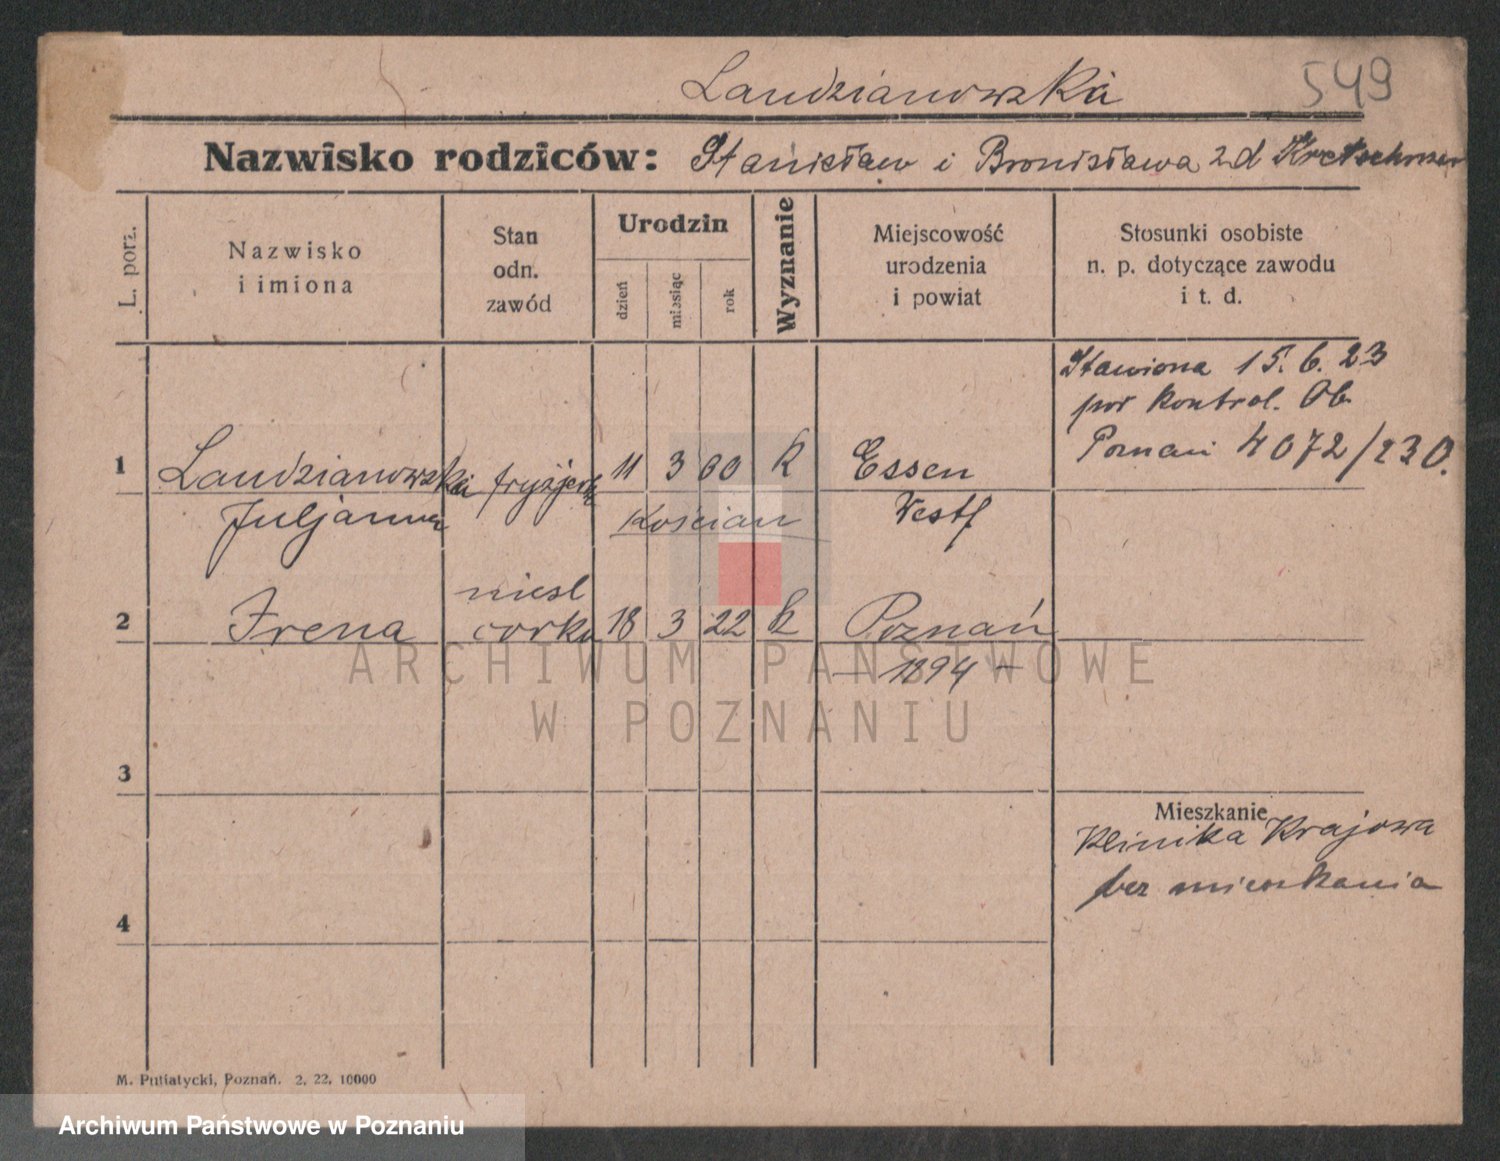 Landzianowska
549
Nazwisko rodziców: Stanisław i Bronisława zd Kretschmer
L. porz.
Nazwisko
i imiona
Stan
odn.
zawód
Urodzin
dzień
miesiąc
rok
Wyznanie
Miejscowość
urodzenia
i powiat
Stosunki osobiste
n. p. dotyczące zawodu
i t. d.
Stawiona 15. 6. 23
por kontrol. Ob.
Poznań 4072/230.
1 Landzianowska fryzjerk 11 3 00 k Essen
Juljanna Kościan Westf
niesl
2 Irena corka 18 3 22 k Poznań
— 1894 —
ARCHIWUM PAŃSTWOWE
W POZNANIU
3
Mieszkanie
Klinika Krajowa
bez mieszkania
4
M. Putiatycki, Poznań. 2, 22, 10000
Archiwum Państwowe w Poznaniu